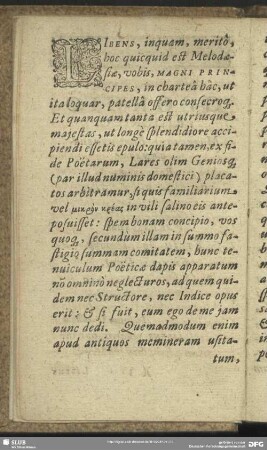 LIBENS, inquam, meritò,
hoc quicquid est Melodæ-
siæ, vobis, MAGNI PRIN-
CIPES, in chartrâ hâc, ut
ita loquar, patellâ offero consecroq.
Et quanquam tanta est utriusque
majestas, ut longè splendidiore acci-
piendi essetis epulo: quia tamen, ex fi-
de Poëtarum, Lares olim Geniosq,
(par illud numinis domestici) placa-
tos arbitramur, si quis familiarium
vel μικρὸν κρέας in vili salino eis ante-
posuisset: spem bonam concipio, vos
quoq, secundum illam in summo fa-
stigio summam comitatem, hunc te-
nuiculum Poëticæ dapis apparatum
nō omninò neglecturos, ad quem qui-
dem nec Structore, nec Indice opus
erit: & si fuit, eum ego de me jam
nunc dedi. Quemadmodum enim
apud antiquos memineram usita-
tum,
SLUB
DFG